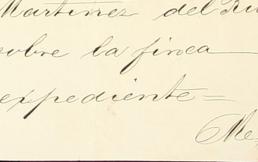 Martinez del Rio
sobre la finca
expediente=
Me